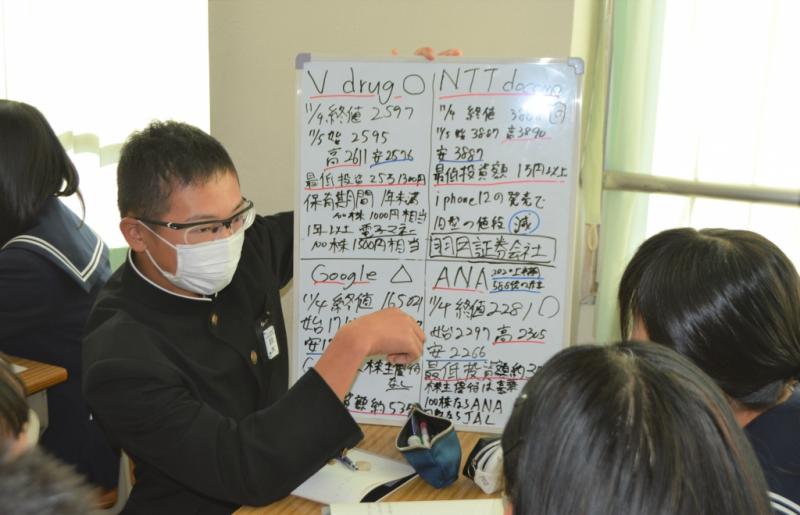 V drug ○
11/4 終値 2597
11/5 始 2595
高 2611 安 2576
最低投資 25万1300円
保有期間 1年未満
100株 1000円相当
1年以上 電子マネー
100株 1500円相当
NTT docomo
11/4 終値
11/5 始 3887 高 3890
安 3887
最低投資額 1万円以上
iphone12の発売で
旧型の値段 減
証券会社
Google △
11/4 終値
始
安
株主優待
なし
額約
ANA
11/4 終値 2281 ○
始 2297 高 2305
安 2266
最低投資額約
株主優待は
100株ならANA
ならJAL